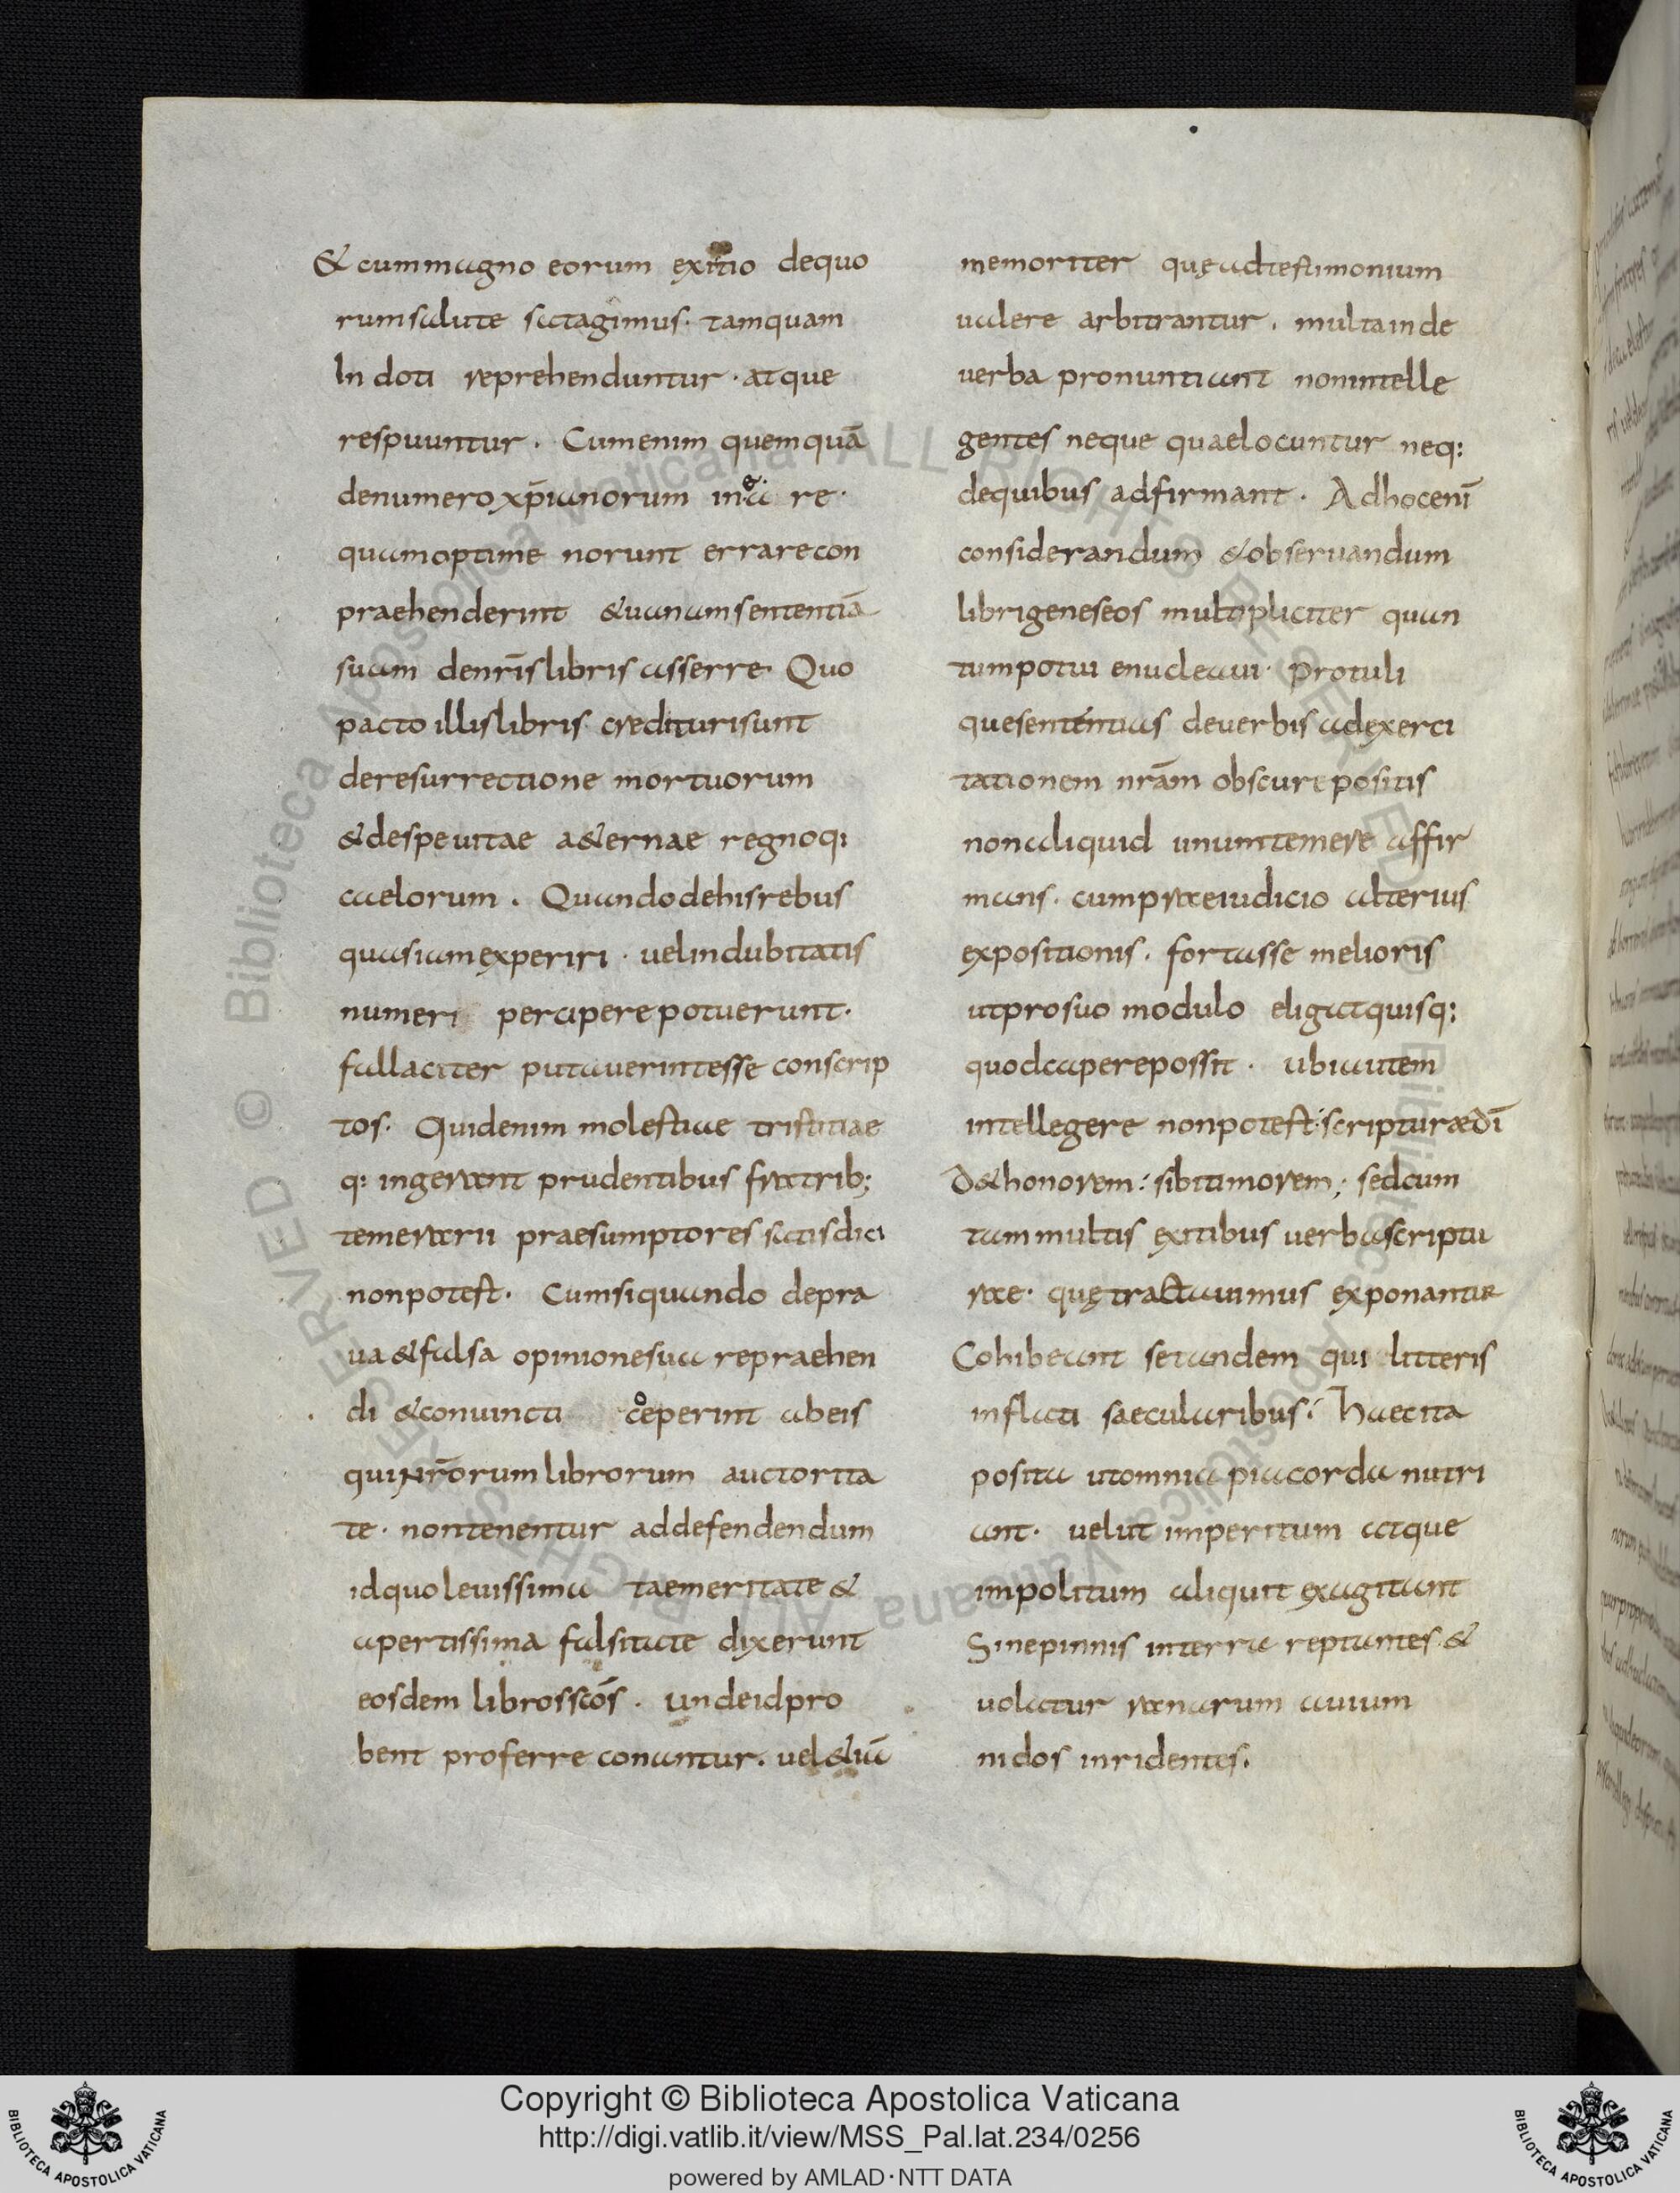 & cum magno eorum exitio dequo
rum salute satagimus· tamquam
Indoti reprehenduntur· atque
respuuntur. Cum enim quemquā
denumero xp̄ianorum in ea re·
quam optime norunt errare con
praehenderint & uanam sententiā
suam denr̄is libris asserre· Quo
pacto illis libris credituri sunt
deresurrectione mortuorum
& despe uitae a&ernae regnoq:
caelorum. Quando de his rebus
quas iam experiri· uel indubitatis
numeri percipere potuerunt·
fallaciter putauerint esse conscrip
tos· Quid enim molestiae tristitiae
q: ingerant prudentibus fratrib;
temerarii praesumptores satis dici
non potest· Cum si quando depra
ua & falsa opinione sua repraehen
di & conuincti coeperint ab eis
qui nr̄orum librorum auctorita
te· non tenentur ad defendendum
id quo leuissima taemeritate &
apertissima falsitate dixerunt
eosdem libros scōs· unde id pro
bent proferre conantur. uel &iā
memoriter quę ad testimonium
ualere arbitrantur. multa inde
uerba pronuntiant non intelle
gentes neque quae locuntur neq:
dequibus adfirmant· Ad hoc enī
considerandum & obseruandum
libri geneseos multipliciter quan
tum potui enucleaui· Protuli
que sententias deuerbis ad exerci
tationem nr̄am obscure positis
non aliquid unum temere affir
mans· cum praeiudicio alterius
expositionis· fortasse melioris
ut pro suo modulo eligat quisq:
quod capere possit· ubi autem
intellegere non potest· scripturae dī
d& honorem: sibi timorem; sed cum
tam multis exitibus uerba scriptu
rae· quę tractauimus exponantur
Cohibeant se tandem qui litteris
inflati saecularibus· haec ita
posita ut omnia pia corda nutri
ant· uelut imperitum atque
impolitum aliquit exagitant
Sine pinnis in terra reptantes· &
uolatur ranarum auium
nidos inridentes.
Copyright © Biblioteca Apostolica Vaticana
http://digi.vatlib.it/view/MSS_Pal.lat.234/0256
powered by AMLAD·NTT DATA
BIBLIOTECA APOSTOLICA VATICANA
BIBLIOTECA APOSTOLICA VATICANA